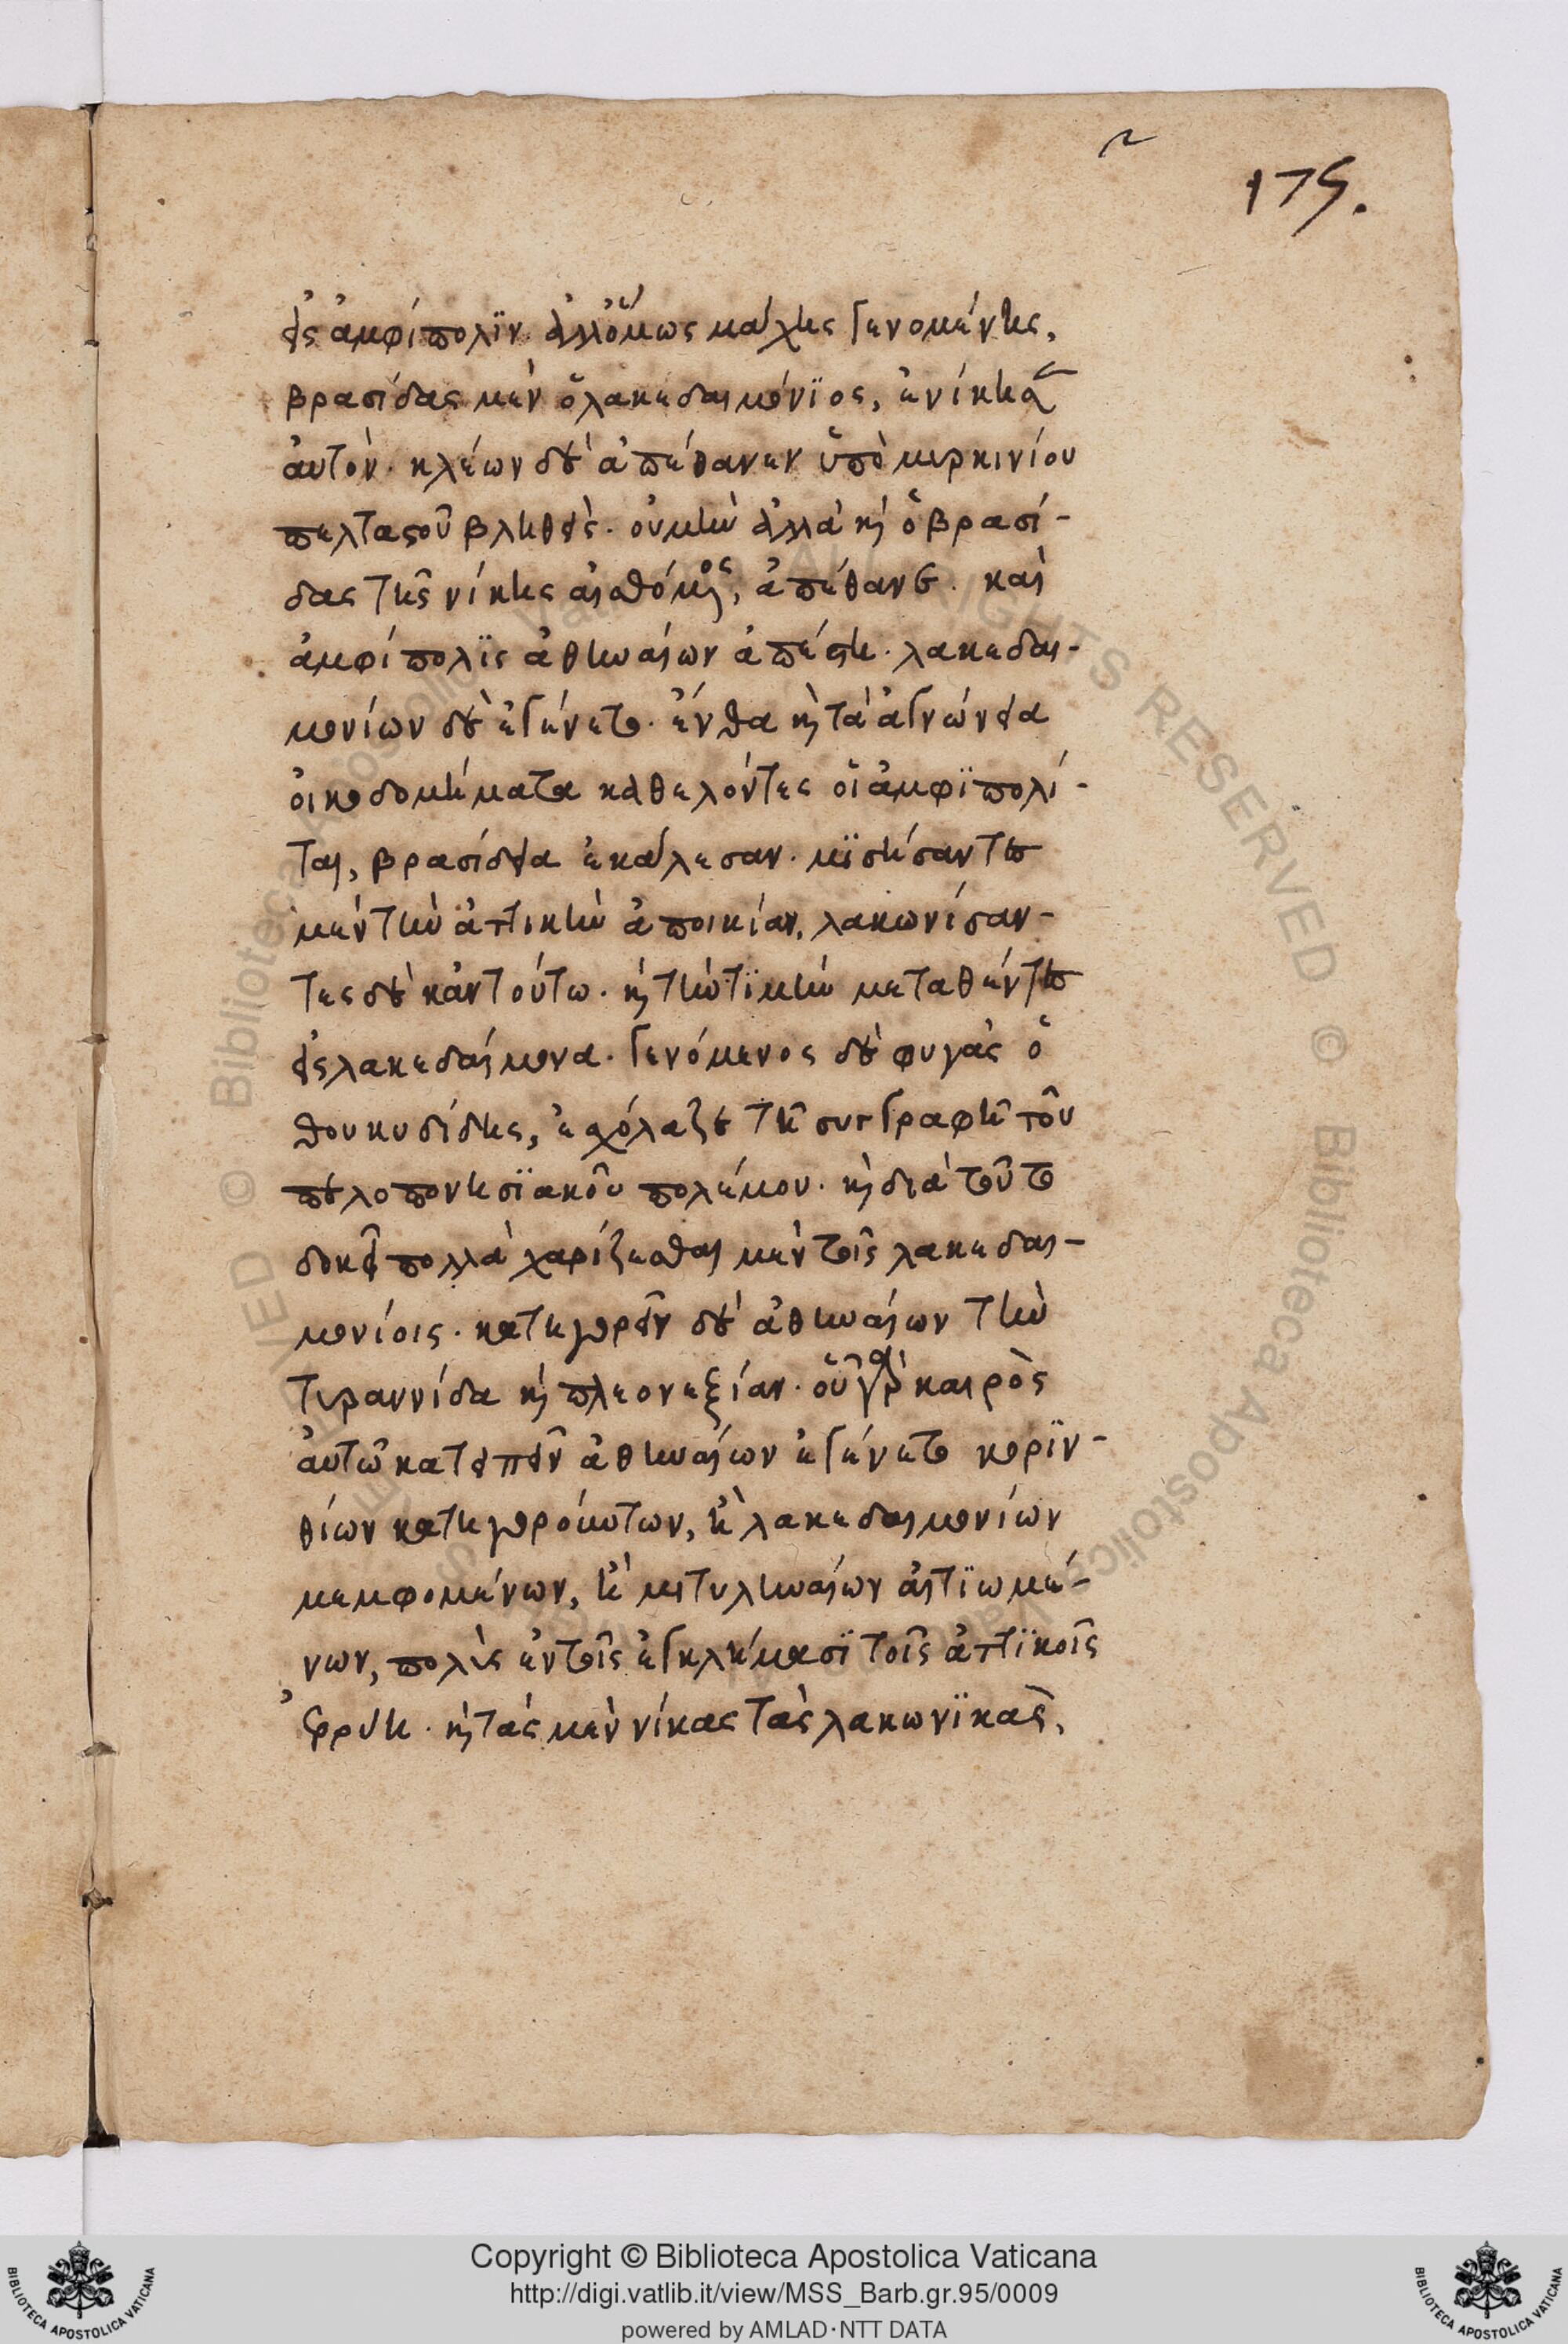 ~
175.
εἰς ἀμφίπολϊν. ἀλλ' ὅμως μάχης γενομένης,
βρασίδας μὲν ὁ λακεδαιμόνϊος, ἐνίκησ
ἀυτόν. κλέων δὲ ἀπέθανεν ὑπὸ μυρκινίου
πελταστοῦ βληθεὶς. ου μὴν ἀλλὰ κὶ ὁ βρασί-
δας τῆς νίκης αἰσθόμενος, ἀπέθανε. καὶ
ἀμφίπολϊς ἀθηναίων ἀπέστη. λακεδαι-
μονίων δὲ ἐγένετο. ἔνθα κὶ τὰ ἁγνώνεια
οἰκοδομήματα καθελόντες οἱ ἀμφϊπολί-
ται, βρασίδεια ἐκάλεσαν. μϊσήσαντες
μὲν τὴν ἀττικὴν ἀποικίαν, λακωνίσαν-
τες δὲ κἀν τούτω. κὶ τὴν τϊμὴν μεταθέντες
εἰς λακεδαίμονα. γενόμενος δὲ φυγὰς ὁ
θουκυδίδης, ἐσχόλαζε τῆ συγγραφῆ τοῦ
πελοπονησϊακοῦ πολέμου. κὶ διὰ τοῦτο
δοκεῖ πολλὰ χαρίζεσθαι μὲν τοῖς λακεδαι-
μονίοις. κατηγορεῖν δὲ ἀθηναίων τὴν
τυραννίδα κὶ πλεονεξίαν. οὗ γὰρ καιρὸς
ἀυτῶ κατειπεῖν ἀθηναίων ἐγένετο κορϊν-
θίων κατηγορούντων, ἢ λακεδαιμονίων
μεμφομένων, ἢ μιτυληναίων ἀιτϊωμέ-
νων, πολὺς ἐν τοῖς ἐγκλήμασϊ τοῖς ἀττϊκοῖς
ἐρρύη. κὶ τὰς μὲν νίκας τὰς λακωνϊκὰς,
Copyright © Biblioteca Apostolica Vaticana
http://digi.vatlib.it/view/MSS_Barb.gr.95/0009
powered by AMLAD·NTT DATA